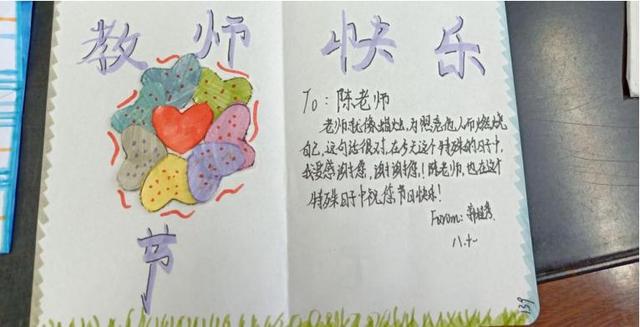 教师 快乐
节
To：陈老师
老师就像蜡烛，为照亮他人而燃烧
自己，这句话很对，在今天这个特殊的日子中，
我要感谢您，谢谢您！陈老师，也在这个
特殊日子中祝您节日快乐！
From：
八.十
139